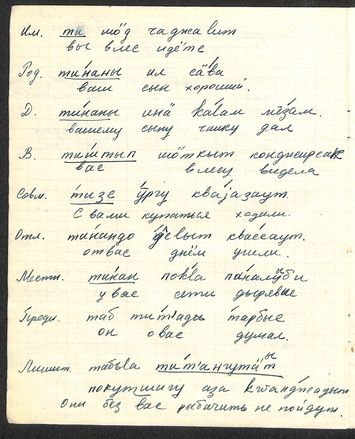 Им. ти мо̄д чаджавит
вы в лес идёте
Род. тӣнаны ил са̄ва
ваш сын хороший.
Д. тӣнаны инӓ ка́лам ме̄зам.
вашему сыну чашку дал
В. тӣштып мо̄ткыт конджирсак
вас в лесу видела
Совм. тӣзе ӯргу ква́jазаут.
С вами купаться ходили.
Отл. ти́нандо че̄выт ква́ссаут.
от вас днём ушли.
Местн. ти́нан по́кла па́налӯби
у вас сети дырявые
Преди. таб ти́т'адъ та́рбыс
он о вас думал.
Лишит. табыла ти́т'ангутӓ
покутшигу аза кwанджеадыт
Они без вас рыбачить не пойдут.